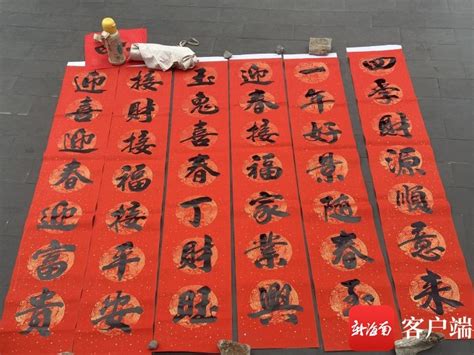 四季財源順意来
一年好景随春
迎春接福家業興
玉兔喜春丁財旺
接財接福接平安
迎喜迎春迎富貴
新海南 客户端